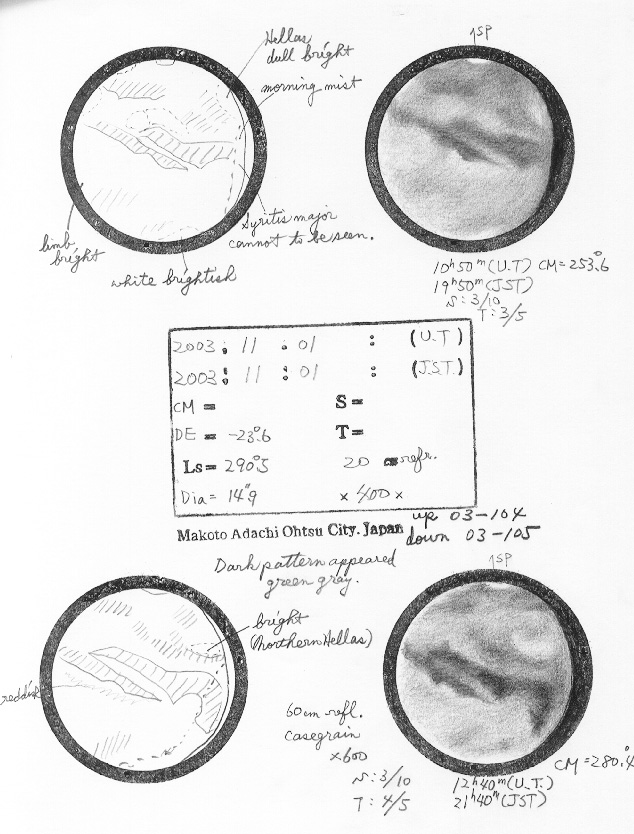 Hellas
dull bright
morning mist
Syritis major
cannot to be seen.
limb
bright
white brightish
↑SP
10ʰ50ᵐ(U.T) CM=253.°6
19ʰ50ᵐ(JST)
S:3/10
T:3/5
2003 : 11 : 01 : (U.T)
2003 : 11 : 01 : (J.S.T.)
CM = S =
DE = -23.°6 T =
Ls = 290.°5 20 cm refr.
Dia = 14."9 × 400 ×
Makoto Adachi Ohtsu City. Japan
up 03-104
down 03-105
Dark pattern appeared
green gray.
↑SP
bright
(Northern Hellas)
reddish
60cm refl.
Casegrain
×600
S:3/10
T:4/5
CM=280.°4
12ʰ40ᵐ(U.T.)
21ʰ40ᵐ(JST)